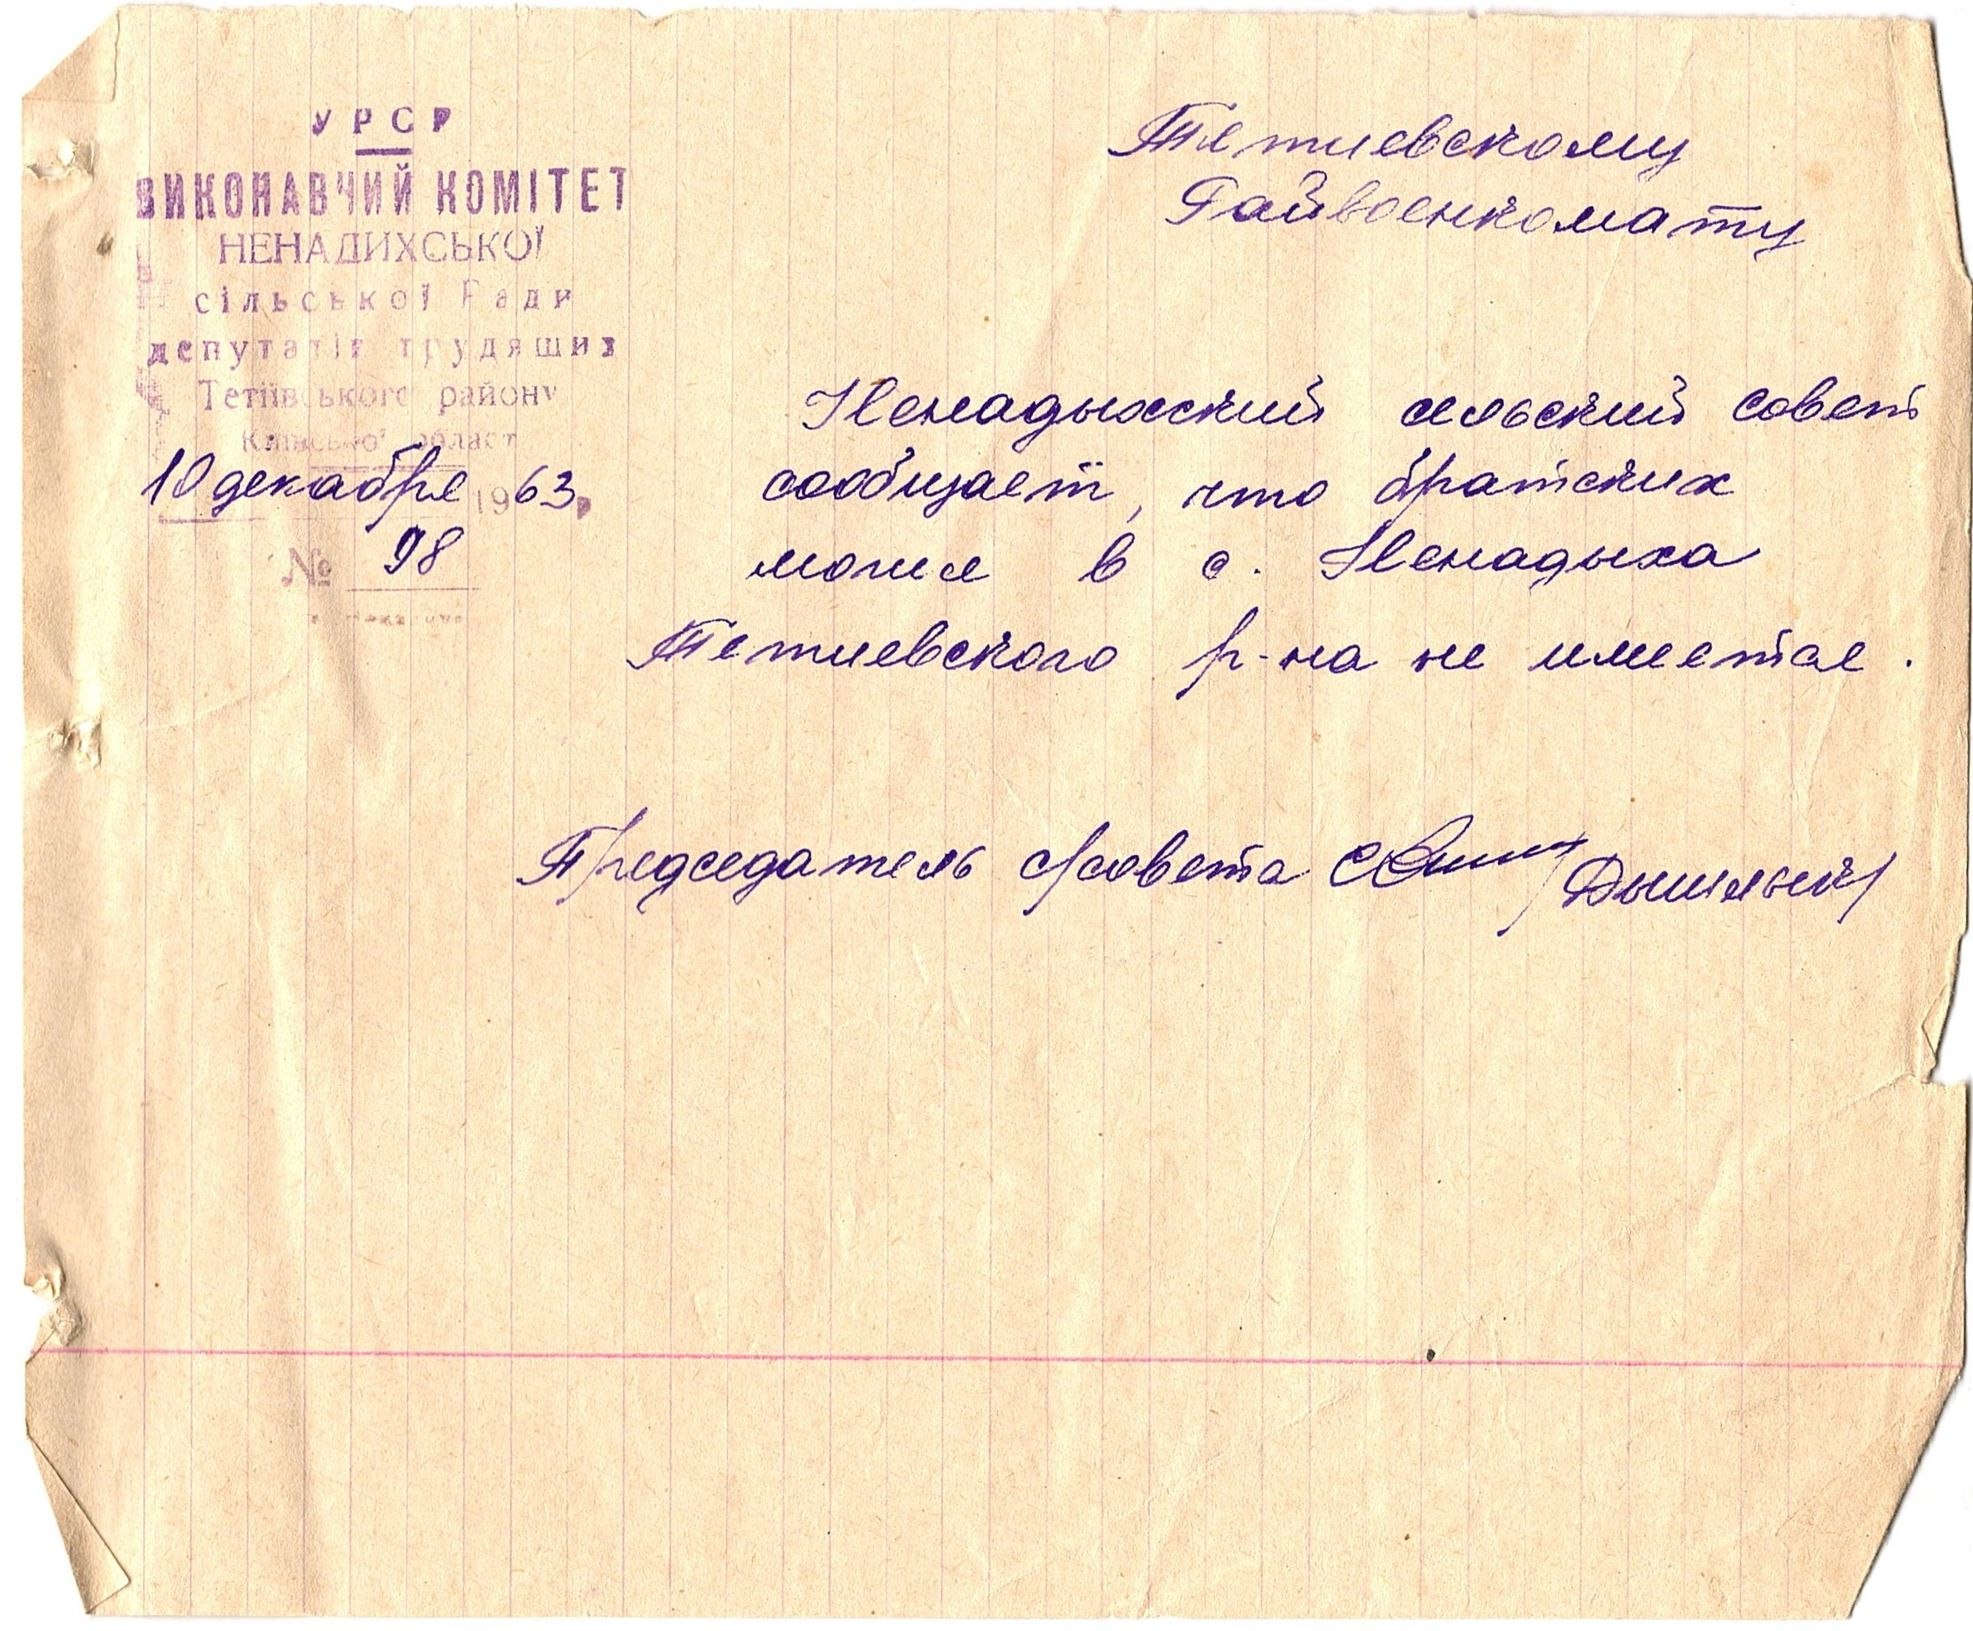 УРСР
ВИКОНАВЧИЙ КОМІТЕТ
НЕНАДИХСЬКОЇ
сільської Ради
депутатів трудящих
Тетіївського району
Київської област
10 декабря 1963
№ 98
Тетиевскому
Райвоенкомату
Ненадыхский сельский совет
сообщает, что братских
могил в с. Ненадыха
Тетиевского р-на не имеется.
Председатель с/совета